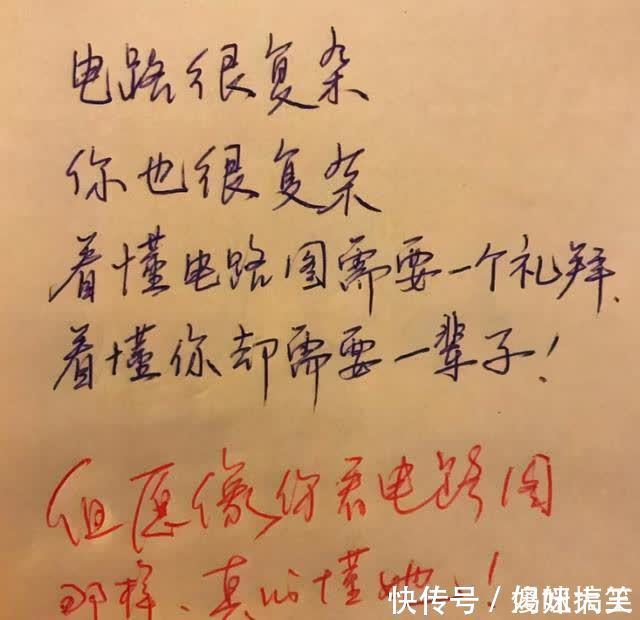 电路很复杂
你也很复杂
看懂电路图需要一个礼拜、
看懂你却需要一辈子!
但愿像你看电路图
那样、真的懂她!
快传号/媳妹搞笑